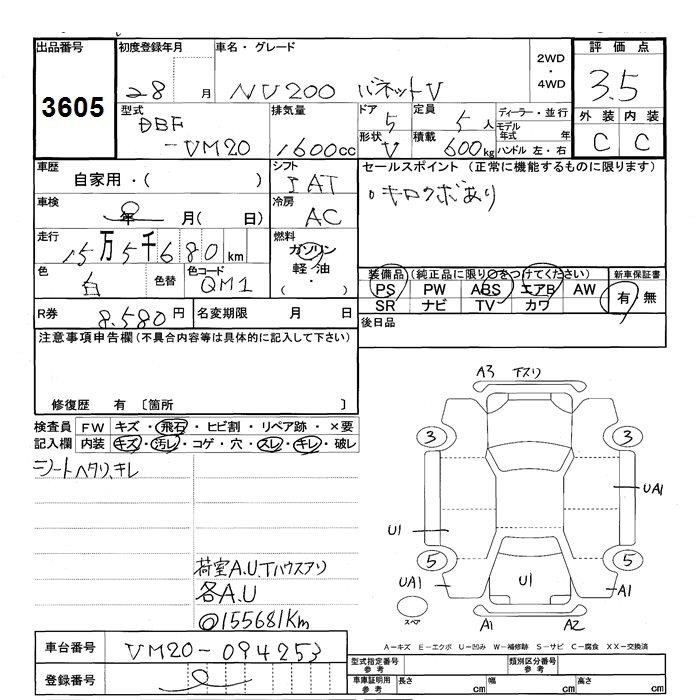 出品番号
3605
初度登録年月
28 月
車名・グレード
NV200 バネットV
2WD
・
4WD
評価点
3.5
外装 内装
C C
型式
DBF
-VM20
排気量
1600cc
ドア 5
形状 V
定員 5人
積載 600kg
ディーラー・並行
モデル年式 年
ハンドル 左・右
車歴
自家用・( )
シフト
IAT
セールスポイント (正常に機能するものに限ります)
。キロクボあり
車検
年 月( 日)
冷房
AC
走行
15万5千680km
燃料
ガソリン
軽油
( ・ )
色
白
色替
色コード
QM1
装備品 (純正品に限り○をつけてください)
PS PW ABS エアB AW
SR ナビ TV カワ
新車保証書
有・無
R券 8.580円
名変期限 月 日
後日品
注意事項申告欄(不具合内容等は具体的に記入して下さい)
修復歴 有 〔箇所 〕
検査員記入欄
FW キズ・飛石・ヒビ割・リペア跡・×要
内装 キズ・汚レ・コゲ・穴・スレ・キレ・破レ
シートヘタリ、キレ
荷室A.U.Tハウスアリ
各A.U
◎155681Km
A3 下スリ
3 3
UA1
U1
5 5
UA1 U1 A1
スペア
A1 A2
A−キズ E−エクボ U−凹み W−補修跡 S−サビ C−腐食 XX−交換済
車台番号 VM20-094253
登録番号
型式指定番号
参考
類別区分番号
参考
車庫証明用
参考
長さ cm 幅 cm 高さ cm